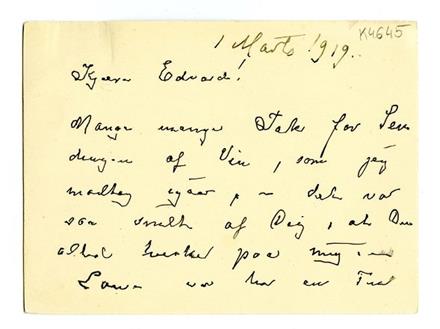 1 Marts 1919.
K4645
Kjære Edvard!
Mange mange Tak for Sen
dingen af Vin, som jeg
modtog igaar, – det var
saa smukt af Dig, at Du
altid tænker paa mig
var her en